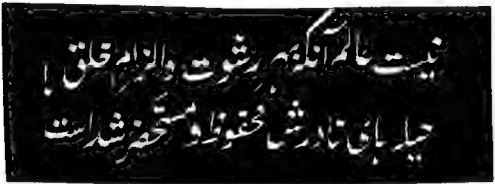 نیست عالم آنکه بهر رشوت و الزام خلق
حیله‌های نادرش محفوظ و مستحضر شد است